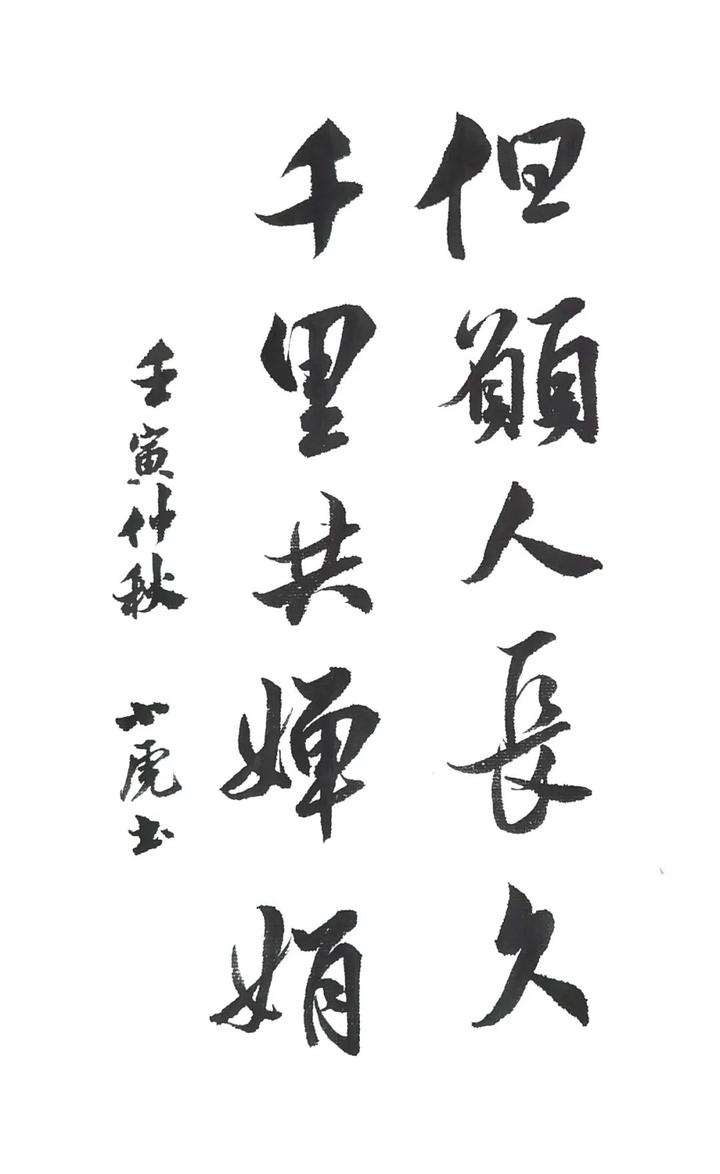 但願人長久
千里共嬋娟
壬寅仲秋 小虎书